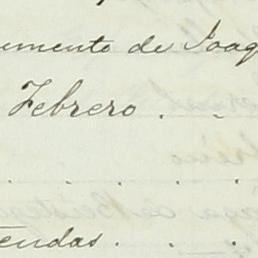 umento de Joaq
Febrero . .
. . . .
tendas . . .